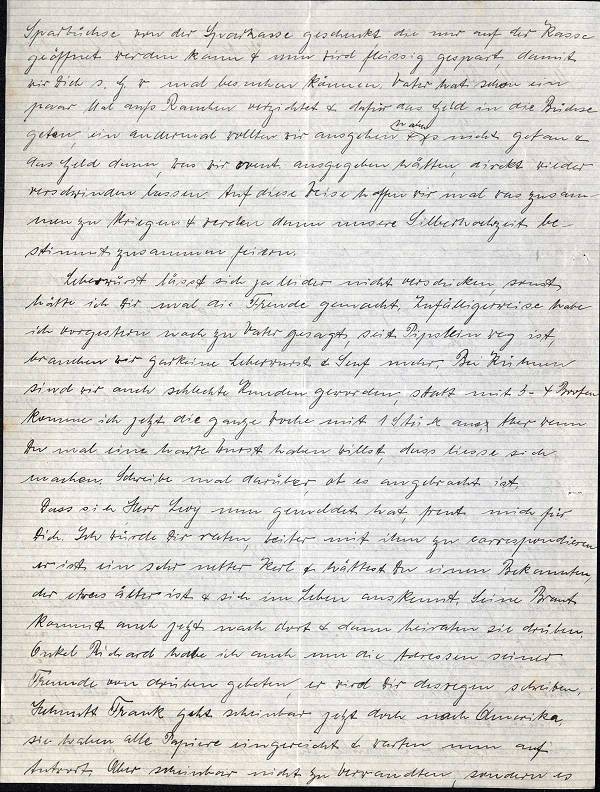 Sparbüchse von der Sparkasse geschenkt die nur auf der Kasse
geöffnet werden kann & nun wird fleissig gespart damit
wir Dich s. G. w mal besuchen können. Vater hat schon ein
paar Mal aufs Rauchen verzichtet & dafür das Geld in die Büchse
getan, ein andermal wollten wir ausgehen & nicht getan &
das Geld dann, was wir event. ausgegeben hätten, direkt wieder
verschwinden lassen. Auf diese Weise hoffen wir mal was zusam-
men zu kriegen & werden dann unsere Silberhochzeit be-
stimmt zusammen feiern.
Leberwurst lässt sich ja leider nicht verschicken, sonst
hätte ich Dir mal die Freude gemacht. Zufälligerweise habe
ich vorgestern noch zu Vater gesagt, seit Pipslein weg ist,
brauchen wir garkeine Leberwurst & Senf mehr. Bei
sind wir auch schlechte Kunden geworden, statt mit 3-4 Broten
komme ich jetzt die ganze Woche mit 1 Stück aus. Aber wenn
Du mal eine harte Wurst haben willst, dass liesse sich
machen. Schreibe mal darüber, ob es angebracht ist.
Dass sich Herr Levy nun gemeldet hat, freut mich für
Dich. Ich würde Dir raten, weiter mit ihm zu correspondieren
er ist ein sehr netter Kerl & hättest Du einen Bekannten,
der etwas älter ist & sich im Leben auskennt. Seine Braut
kommt auch jetzt nach dort & dann heiraten sie drüben.
Onkel Richard habe ich auch um die Adressen seiner
Freunde von drüben gebeten, er wird Dir deswegen schreiben.
Frank geht scheinbar jetzt doch nach Amerika,
sie haben alle Papiere eingereicht & warten nun auf
Antwort. Aber scheinbar nicht zu Verwandten, sondern es